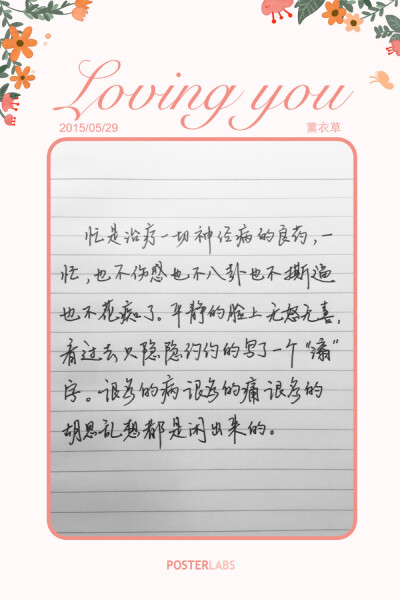 Loving you
2015/05/29 薰衣草
忙是治疗一切神经病的良药,一
忙,也不伤感也不八卦也不撕逼
也不花痴了。平静的脸上无怒无喜,
看过去只隐隐约约的写了一个“滿”
字。很多的病很多的痛很多的
胡思乱想都是闲出来的。
POSTERLABS